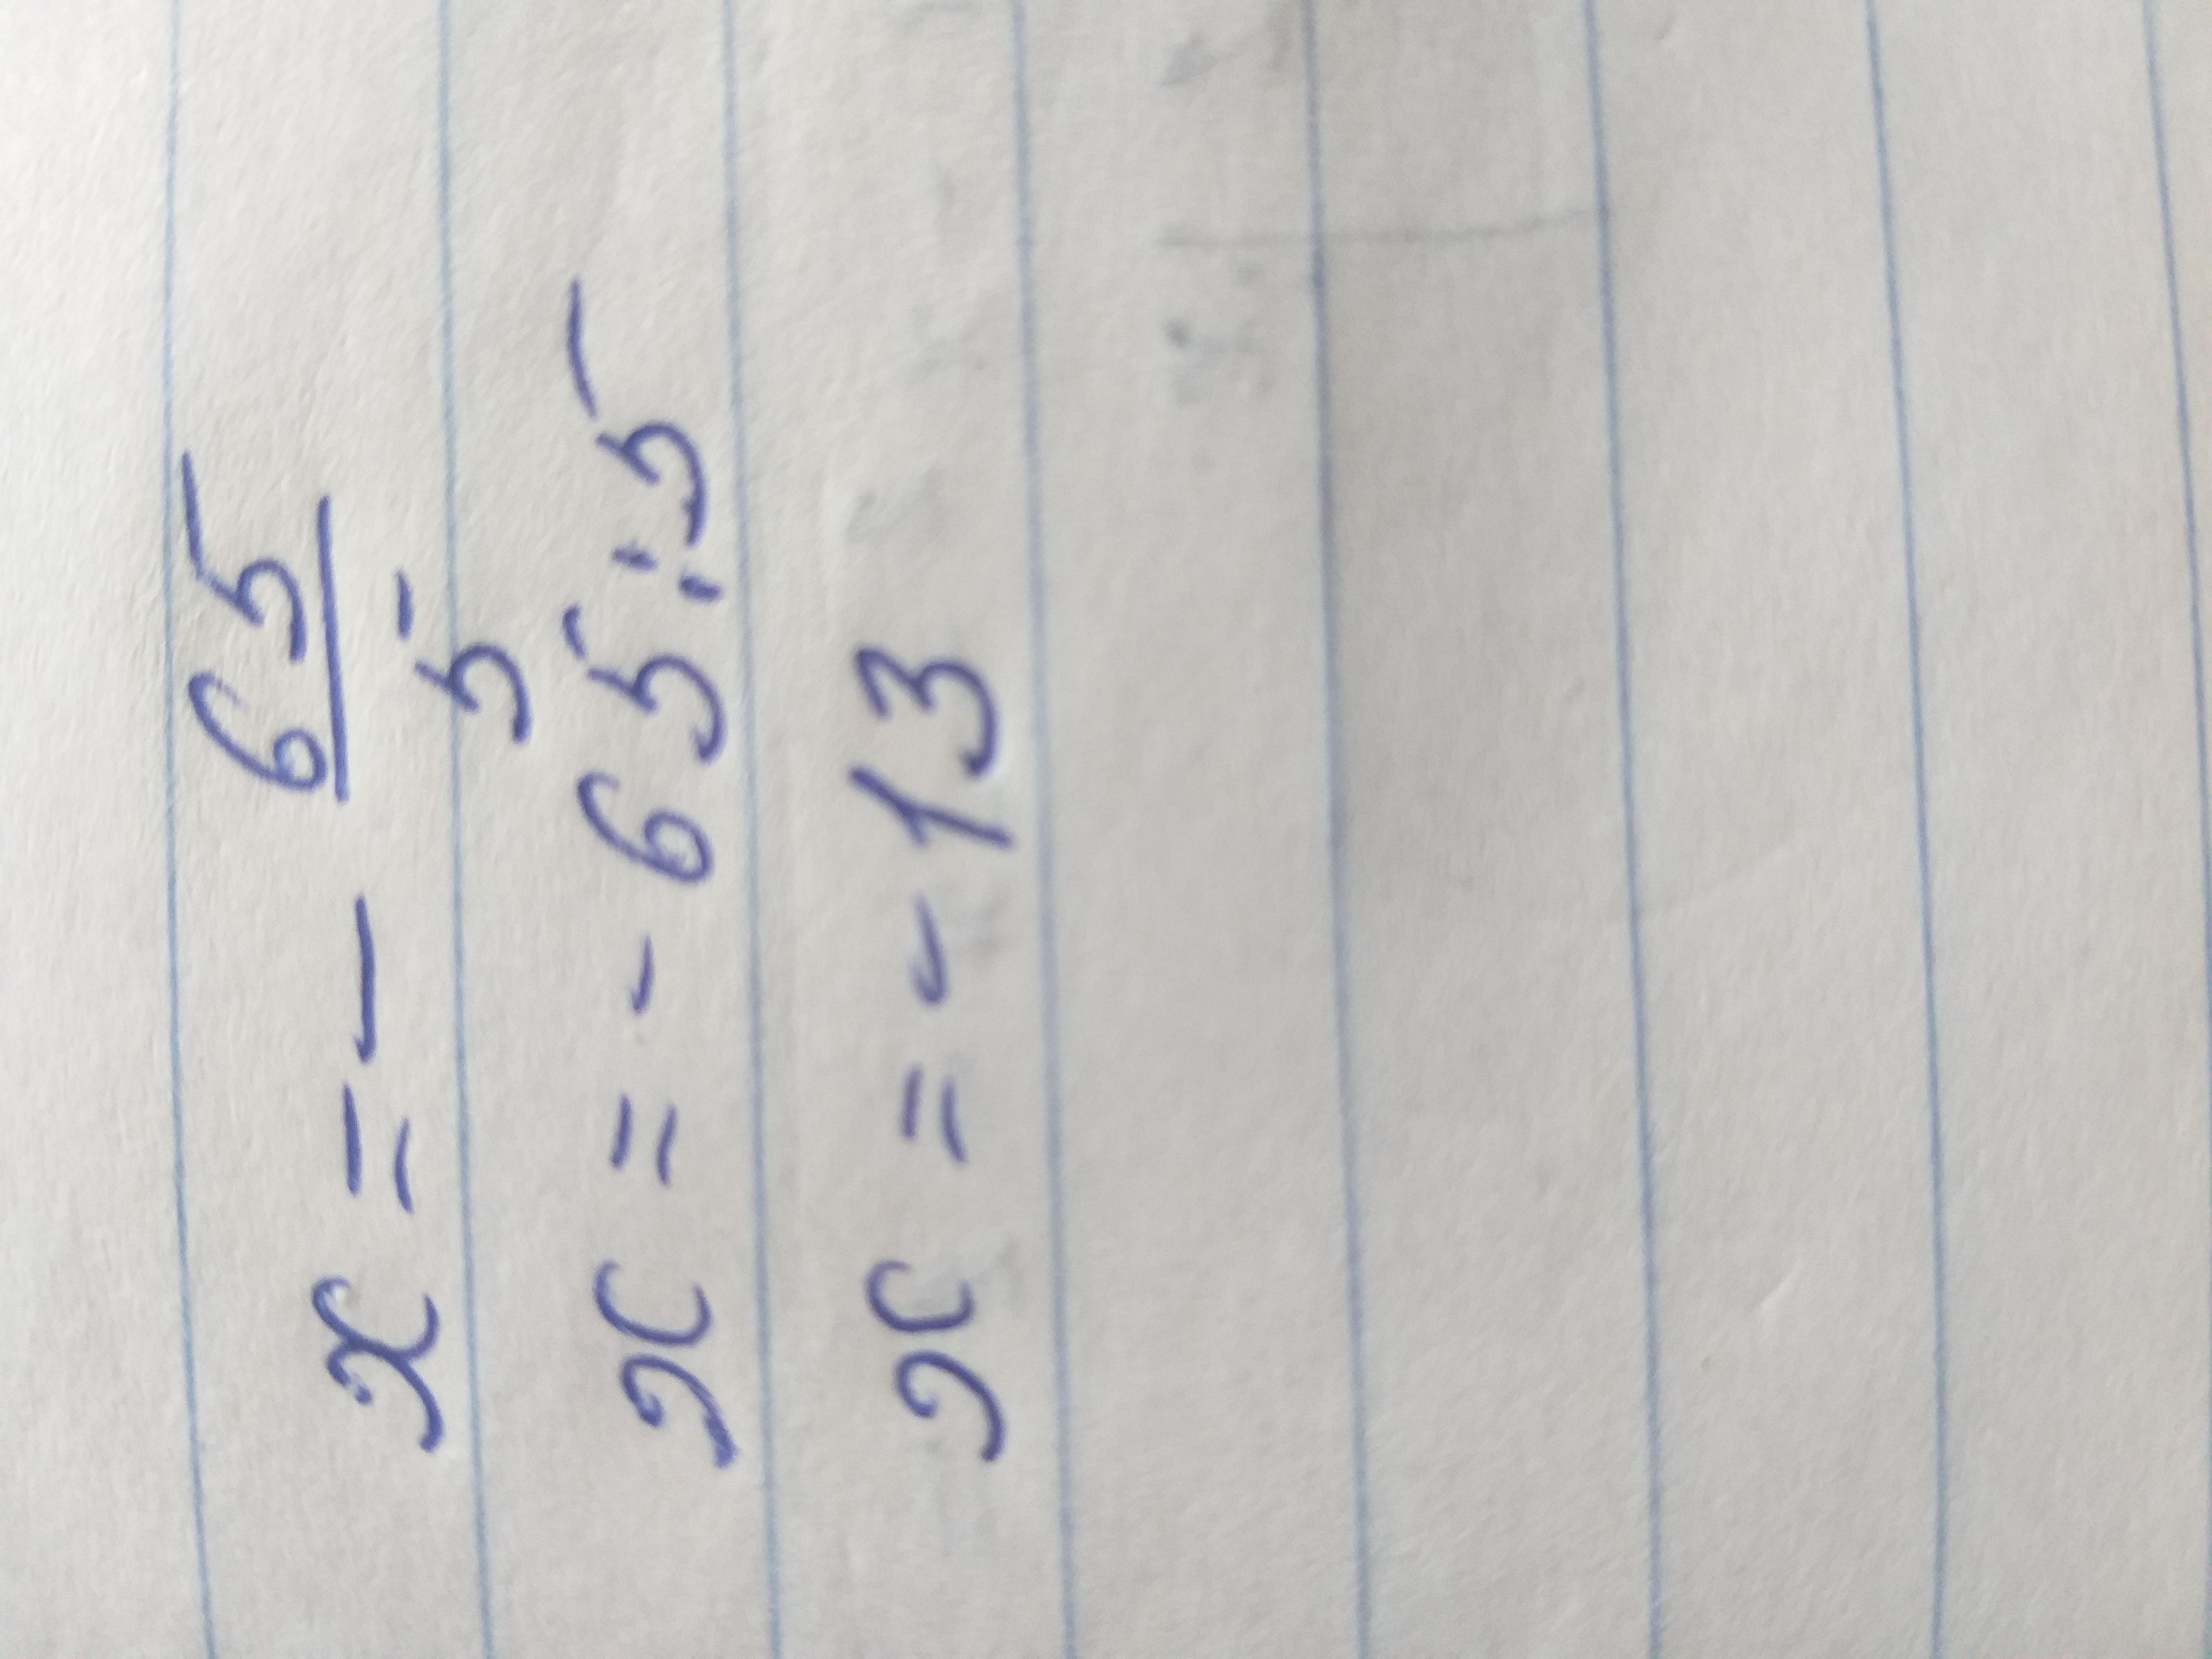 x = - 65/5
x = - 65 : 5
x = - 13